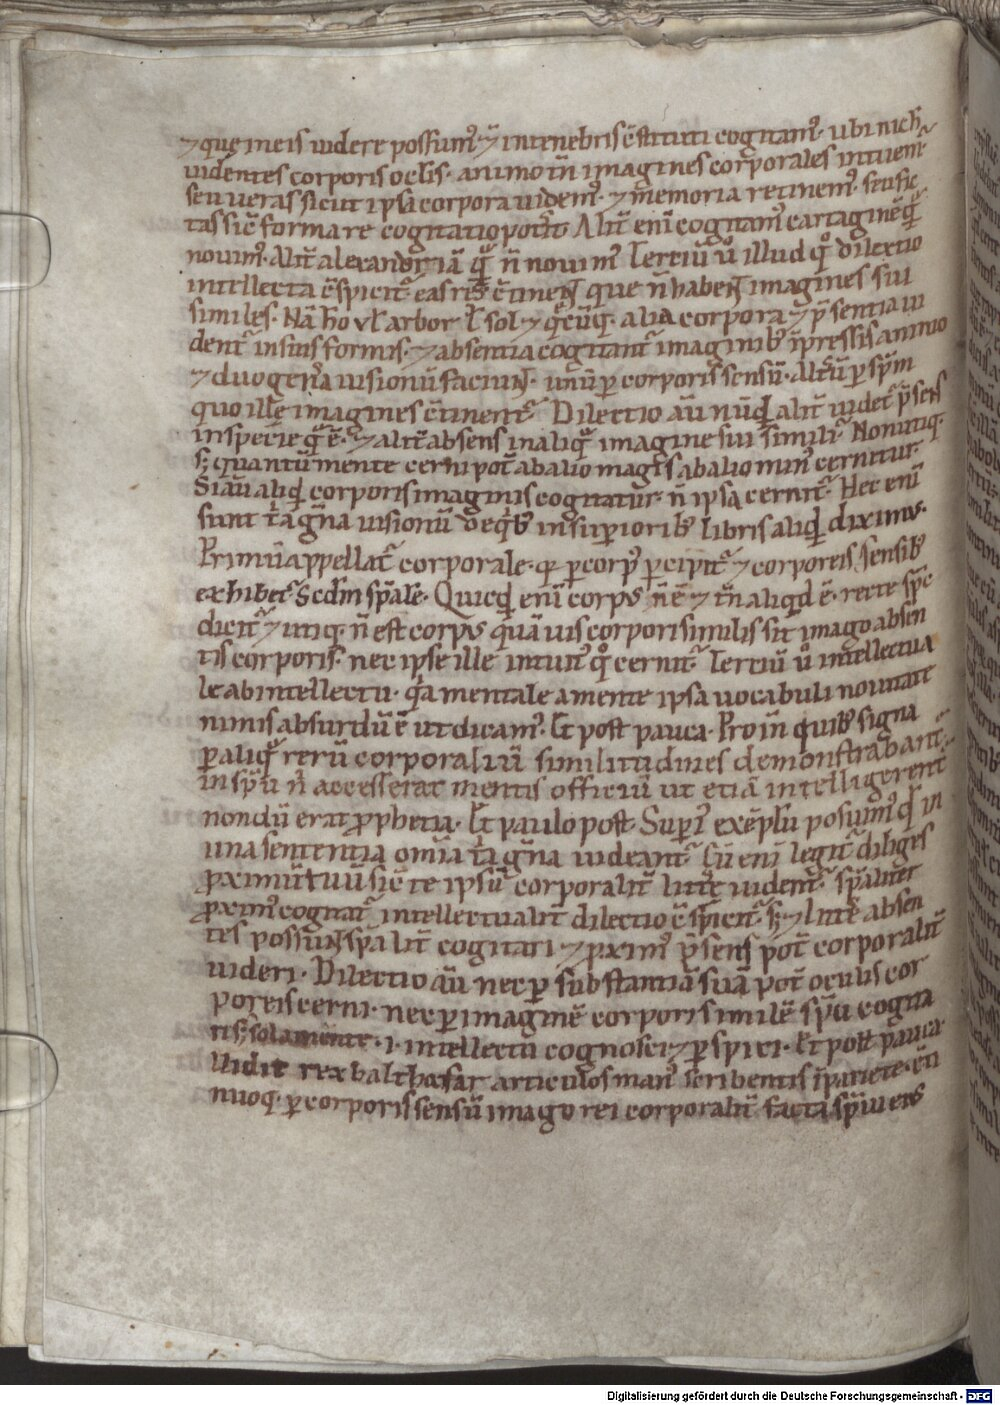 ⁊ que in eis uidere possum᷒. ⁊ in tenebris c̄stituti cogitam᷒. ubi nich̄
uidentes corporis oc̄lis. animo tn̄ imagines corporales intuem̄
seu ueras sicut ipsa corpora uidem᷒. ⁊ memoria retinem᷒. seu fic
tas sic̄ formare cogitatio pot̄it Alit̄ eni cogitam᷒ cartaginē q̄
nouim᷒. Alit̄ alexandriā q̄ n̄ nouim᷒ Terciū ů illud q̊ dilectio
intellecta c̄spicit᷑. eas res c̄tinent que n̄ habent imagines sui
similes. Nā homo ul̄ arbor ł sol ⁊ q̄cūq. alia corpora ⁊ p̄sentia ui
dent᷑ in suis formis. ⁊ absentia cogitant᷑ imaginib᷒ īpressis animo
⁊ duo gen̄a uisionū faciunt. unū ꝑ corporis sensū. Altr̄ū ꝑ sp̄m
quo ille imagines c̄tinent᷑ Dilectio aū nūqd alit̄ uidet᷑ p̄sens
in specie q̄ ē. ⁊ alit̄ absens in aliq̄ imagine sui simili᷑ Non utiq.
s; quantū mente cerni pot̄ ab alio magis ab alio min᷒ cernitur.
Si aū aliqd corporis imaginis cogitatur. n̄ ipsa cernit᷑. Hec enī
sunt t̄a gn̄a uisionū de qb᷒ in sup̄iorib᷒ libris aliqd diximus.
Primū appellat᷑ corporale. q ꝑ corp᷒ ꝑcipit᷑ ⁊ corporeis sensib᷒
exhibet᷑ Scd̄m sp̄ale. Quicqd enī corpus n̄ ē ⁊ tn̄ aliqd ē. recte sp̄c
dicit᷑ ⁊ utiq. n̄ est corpus q̄uis corpori similis sit imago absen
tis corporis. nec ipse ille intuit᷒ q̊ cernit᷑. Terciū ů intellectua
le ab intellectu. q̄a mentale a mente ipsa uocabuli nouitate
nimis absurdū ē ut dicam᷒. Et post pauca. Proin̄ quib᷒ signa
ꝑ aliq̄ rerū corporaliū similitudines demonstrabant᷑
in sp̄u n̄ accesserat mentis officiū ut etiā intelligerent᷑
nondū erat ꝓphetia. Et paulo post. Sup̄i᷒ exēplū posuim᷒ qd in
una sententia om̄ia t̄a gn̄a uideant᷑ Cū enī legit᷑ diliges
ꝓximū tuū sic te ipsū corporalit̄ litt̄e uident᷑. sp̄aliter
ꝓxim᷒ cogitat᷑ intellectualit̄ dilectio c̄spicit᷑. S; ⁊ litt̄e absen
tes possunt sp̄alit̄ cogitari ⁊ ꝓxim᷒ p̄sens pot̄ corporalit̄
uideri. Dilectio aū nec ꝑ substantiā suā pot̄ oculis cor
poreis cerni. nec ꝑ imaginē corporis similē sp̄u cogita
ri s; sola mente .i. intellectu cognosci ⁊ ꝑspici. Et post pauca
Uidit rex balthasar articulos man᷒ scribentis ī pariete. cti
nuoq. ꝑ corporis sensū imago rei corporalit̄ facta sp̄iui eius
Digitalisierung gefördert durch die Deutsche Forschungsgemeinschaft - DFG